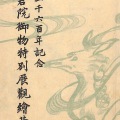 千六百年記念
倉院御物特別展觀繪